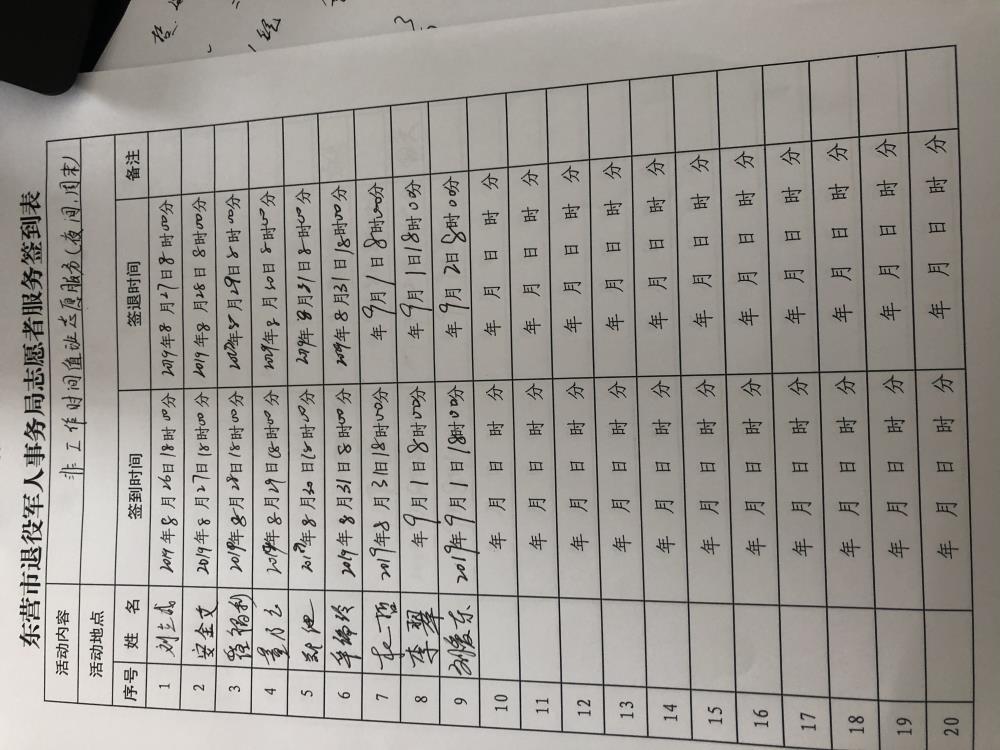 东营市退役军人事务局志愿者服务签到表
活动内容 非工作时间值班志愿服务(夜间、周末)
活动地点
序号 姓 名 签到时间 签退时间 备注
1 2019年8月26日18时00分 2019年8月27日8时00分
2 安金文 2019年8月27日18时00分 2019年8月28日8时00分
3 2019年8月28日18时00分 年8月29日8时00分
4 2019年8月29日18时00分 2019年8月30日8时00分
5 2019年8月30日18时00分 2019年8月31日8时00分
6 2019年8月31日8时00分 2019年8月31日18时00分
7 2019年8月31日18时00分 年9月1日8时00分
8 李翠 年9月1日8时00分 年9月1日18时00分
9 2019年9月1日18时00分 年9月2日8时00分
10 年 月 日 时 分 年 月 日 时 分
11 年 月 日 时 分 年 月 日 时 分
12 年 月 日 时 分 年 月 日 时 分
13 年 月 日 时 分 年 月 日 时 分
14 年 月 日 时 分 年 月 日 时 分
15 年 月 日 时 分 年 月 日 时 分
16 年 月 日 时 分 年 月 日 时 分
17 年 月 日 时 分 年 月 日 时 分
18 年 月 日 时 分 年 月 日 时 分
19 年 月 日 时 分 年 月 日 时 分
20 年 月 日 时 分 年 月 日 时 分